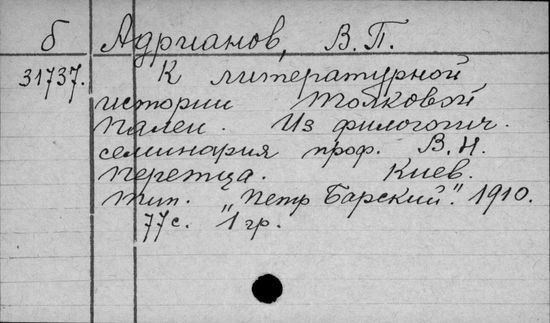 б Адрианов, В.П.
31737. К литературной
истории Толковой
Палеи. Из филологич.
семинария проф. В.Н.
Перетца. Киев.
Тип. „Петр Барский“. 1910.
77 с. 1 гр.